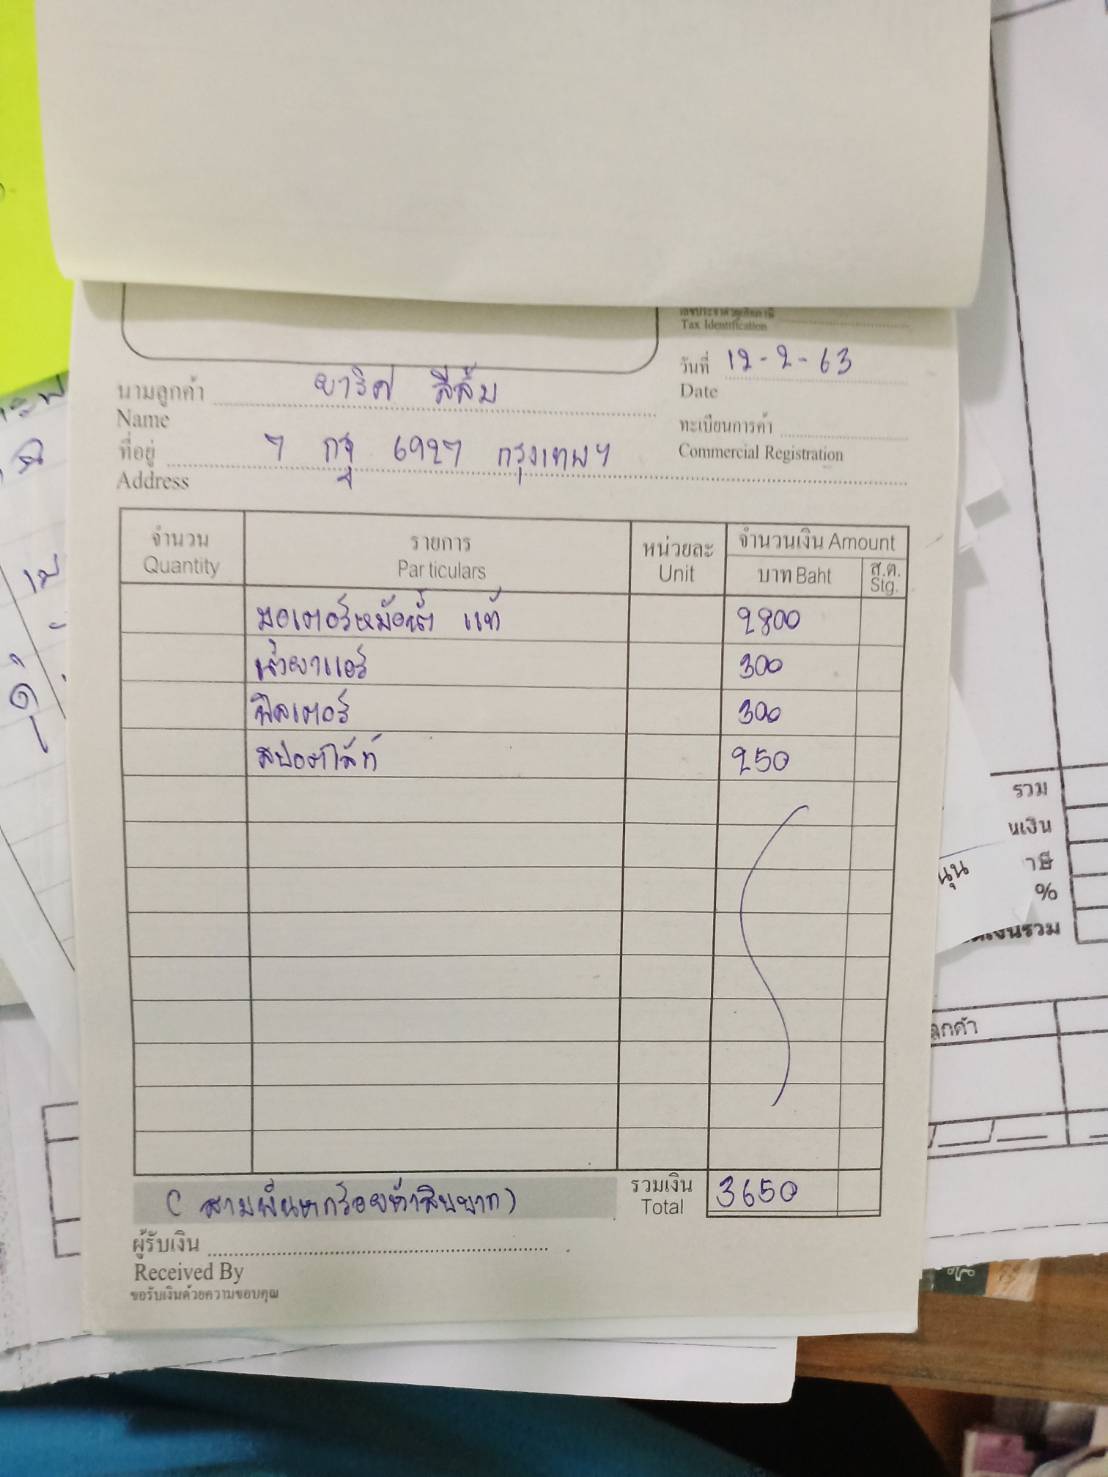 Tax Identification
วันที่ 12-2-63
Date
นามลูกค้า ยาริศ สีส้ม
Name
ทะเบียนการค้า
Commercial Registration
ที่อยู่ 7 กฐ 6927 กรุงเทพฯ
Address
จำนวน รายการ หน่วยละ จำนวนเงิน Amount
Quantity Particulars Unit บาท Baht ส.ต. Stg.
มอเตอร์หม้อน้ำ แท้ 2800
น้ำยาแอร์ 300
ฟิลเตอร์ 300
สปอตไล้ท์ 250
(สามพันหกร้อยห้าสิบบาท) รวมเงิน 3650
Total
ผู้รับเงิน
Received By
ขอรับเงินด้วยความขอบคุณ
รวม
นเงิน
%
ลูกค้า